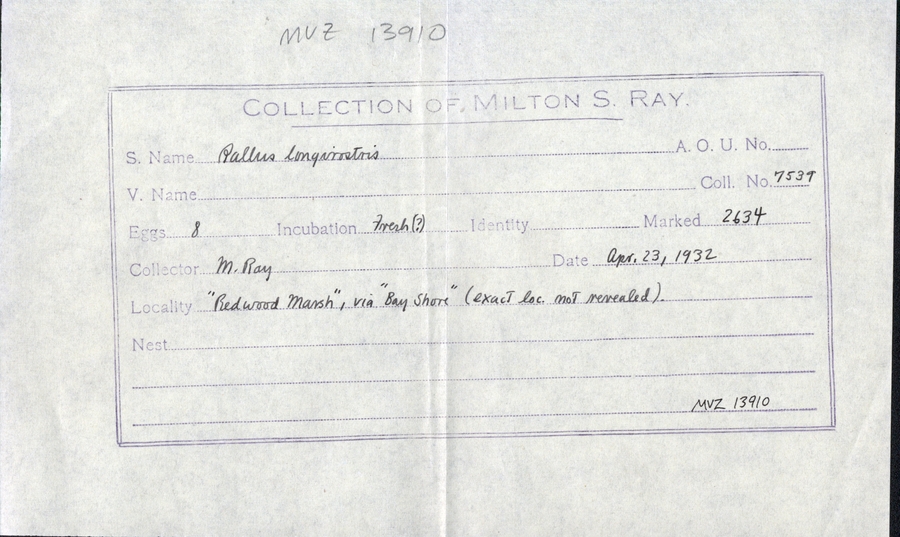 MVZ 13910
COLLECTION OF MILTON S. RAY.
S. Name Rallus longirostris A. O. U. No.
V. Name Coll. No. 7539
Eggs 8 Incubation Fresh(?) Identity Marked 2634
Collector M. Ray Date Apr. 23, 1932
Locality "Redwood Marsh", via "Bay Shore" (exact loc. not revealed).
Nest
MVZ 13910